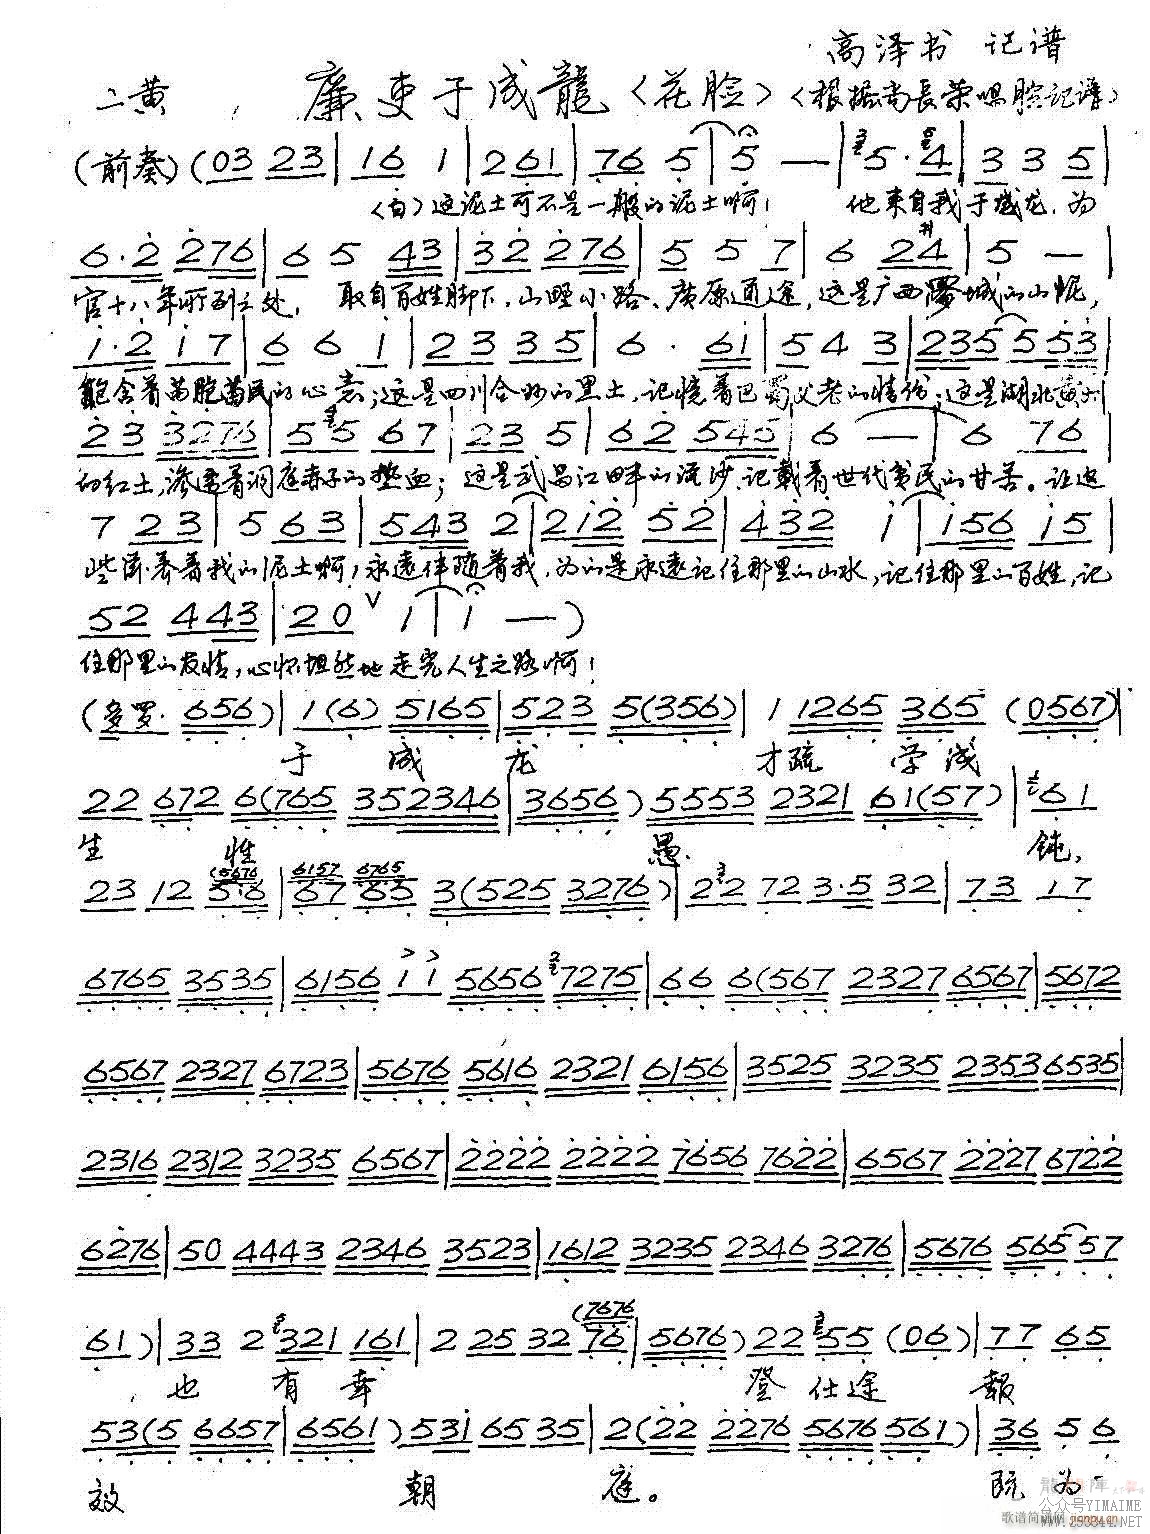 高泽书 记谱
二黄 廉吏于成龍〈花脸〉〈根据尚長荣唱腔记谱〉
(前奏)(03 23|161|261|765|5 —|5·4|335
〈白〉这泥土可不是一般的泥土啊! 他来自我于成龙,为
6·2 276|65 43|32 276|557|6 24|5 —|
官十八年所到之处, 取自百姓脚下,山野小路、广原通途,这是广西罗城的山泥,
1·2 17|661|23 35|6·61|54 3|235 553|
饱含着苗胞苗民的心态;这是四川合州的黑土,记忆着巴蜀父老的情份;这是湖北黄州
23 3276|55 67|23 5|62 545|6 —|6 76|
的红土,渗透着洞庭赤子的热血;这是武昌江畔的流沙,记载着世代黄民的甘苦。让这
7 23|5 63|543 2|212 52|432 1|156 15|
些滋养着我的泥土啊,永远伴随着我,为的是永远记住那里的山水,记住那里的百姓,记
52 443|20 ∨ 1|1 —)
住那里的友情,心怀坦然地走完人生之路啊!
(多罗· 656)|1(6) 5165|523 5(356)|1 1265 365 (0567)|
于 成 龙 才疏 学浅
22 672 6(765 352346|3656) 5553 2321 61(57)|61
生 性 愚 钝,
(5676 6157 6765
23 12 5·6|67 65 3(525 3276)|22 72 3·5 32|73 17
6765 3535|6156 11 5656 7275|66 6(567 2327 6567|5672
6567 2327 6723|5676 5616 2321 6156|3525 3235 2353 6535|
2316 2312 3235 6567|2222 2222 7656 7622|6567 2227 6722
6276|50 4443 2346 3523|1612 3235 2346 3276|5676 565 57
(7676
61)|33 2 321 161|2 25 32 76|5676) 22 55 (06)|77 65
也 有 幸 登 仕途 報
53(5 6657|6561) 531 65 35|2(22 2276 5676 561)|36 5 6
效 朝 庭。 既 为一
公众号YIMAIME
歌谱简谱网
www.253844.NET